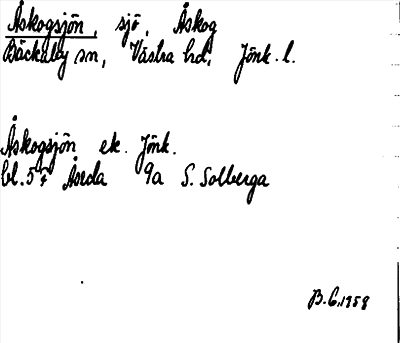 Åskogsjön, sjö, Åskog
Bäckaby sn, Västra hd, Jönk. l.
Åskogsjön ek. Jönk.
bl. 57 Åseda 9a S. Solberga
B.G. 1958